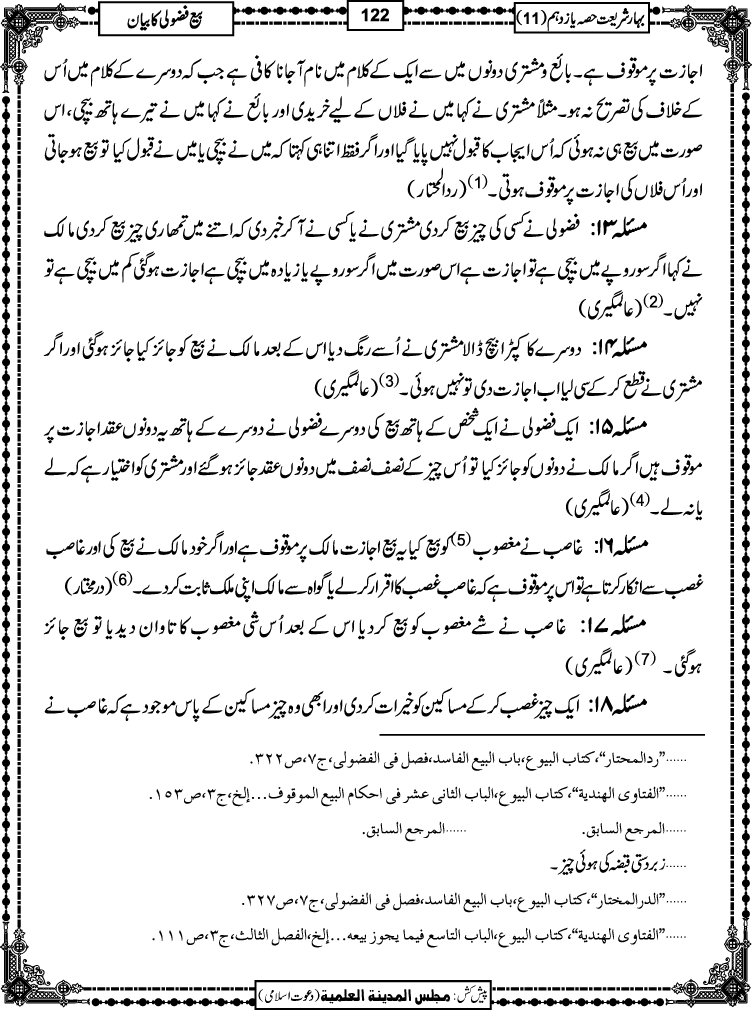 بہارِ شریعت حصہ یازدہم (11)
122
بیع فضولی کا بیان
اجازت پر موقوف ہے۔ بائع و مشتری دونوں میں سے ایک کے کلام میں نام آجانا کافی ہے جب کہ دوسرے کے کلام میں اُس
کے خلاف کی تصریح نہ ہو۔ مثلاً مشتری نے کہا میں نے فلاں کے لیے خریدی اور بائع نے کہا میں نے تیرے ہاتھ بیچی، اس
صورت میں بیع ہی نہ ہوئی کہ اُس ایجاب کا قبول نہیں پایا گیا اور اگر فقط اتنا ہی کہتا کہ میں نے بیچی یا میں نے قبول کیا تو بیع ہو جاتی
اور اُس فلاں کی اجازت پر موقوف ہوتی۔(1) (ردالمحتار)
مسئلہ ۱۳: فضولی نے کسی کی چیز بیع کر دی مشتری نے یا کسی نے آ کر خبر دی کہ اتنے میں تمھاری چیز بیع کر دی مالک
نے کہا اگر سو روپے میں بیچی ہے تو اجازت ہے اس صورت میں اگر سو روپے یا زیادہ میں بیچی ہے اجازت ہو گئی کم میں بیچی ہے تو
نہیں۔(2) (عالمگیری)
مسئلہ ۱۴: دوسرے کا کپڑا بیچ ڈالا مشتری نے اُسے رنگ دیا اس کے بعد مالک نے بیع کو جائز کیا جائز ہو گئی اور اگر
مشتری نے قطع کر کے سی لیا اب اجازت دی تو نہیں ہوئی۔(3) (عالمگیری)
مسئلہ ۱۵: ایک فضولی نے ایک شخص کے ہاتھ بیع کی دوسرے فضولی نے دوسرے کے ہاتھ یہ دونوں عقد اجازت پر
موقوف ہیں اگر مالک نے دونوں کو جائز کیا تو اُس چیز کے نصف نصف میں دونوں عقد جائز ہو گئے اور مشتری کو اختیار ہے کہ لے
یا نہ لے۔(4) (عالمگیری)
مسئلہ ۱۶: غاصب نے مغصوب(5) کو بیع کیا یہ بیع اجازت مالک پر موقوف ہے اور اگر خود مالک نے بیع کی اور غاصب
غصب سے انکار کرتا ہے تو اس پر موقوف ہے کہ غاصب غصب کا اقرار کر لے یا گواہ سے مالک اپنی ملک ثابت کر دے۔(6) (درمختار)
مسئلہ ۱۷: غاصب نے شے مغصوب کو بیع کر دیا اس کے بعد اُس شی مغصوب کا تاوان دیدیا تو بیع جائز
ہو گئی۔(7) (عالمگیری)
مسئلہ ۱۸: ایک چیز غصب کر کے مساکین کو خیرات کر دی اور ابھی وہ چیز مساکین کے پاس موجود ہے کہ غاصب نے
......”ردالمحتار“،کتاب البیوع،باب البیع الفاسد،فصل فی الفضولی،ج۷،ص۳۲۲.
......”الفتاوی الھندیة“،کتاب البیوع،الباب الثانی عشر فی احکام البیع الموقوف...إلخ،ج۳،ص۱۵۳.
......المرجع السابق. ......المرجع السابق.
......زبردستی قبضہ کی ہوئی چیز۔
......”الدرالمختار“،کتاب البیوع،باب البیع الفاسد،فصل فی الفضولی،ج۷،ص۳۲۷.
......”الفتاوی الھندیة“،کتاب البیوع،الباب التاسع فیما یجوز بیعه...إلخ،الفصل الثالث،ج۳،ص۱۱۱.
پیش کش: مجلس المدینة العلمیة (دعوت اسلامی)